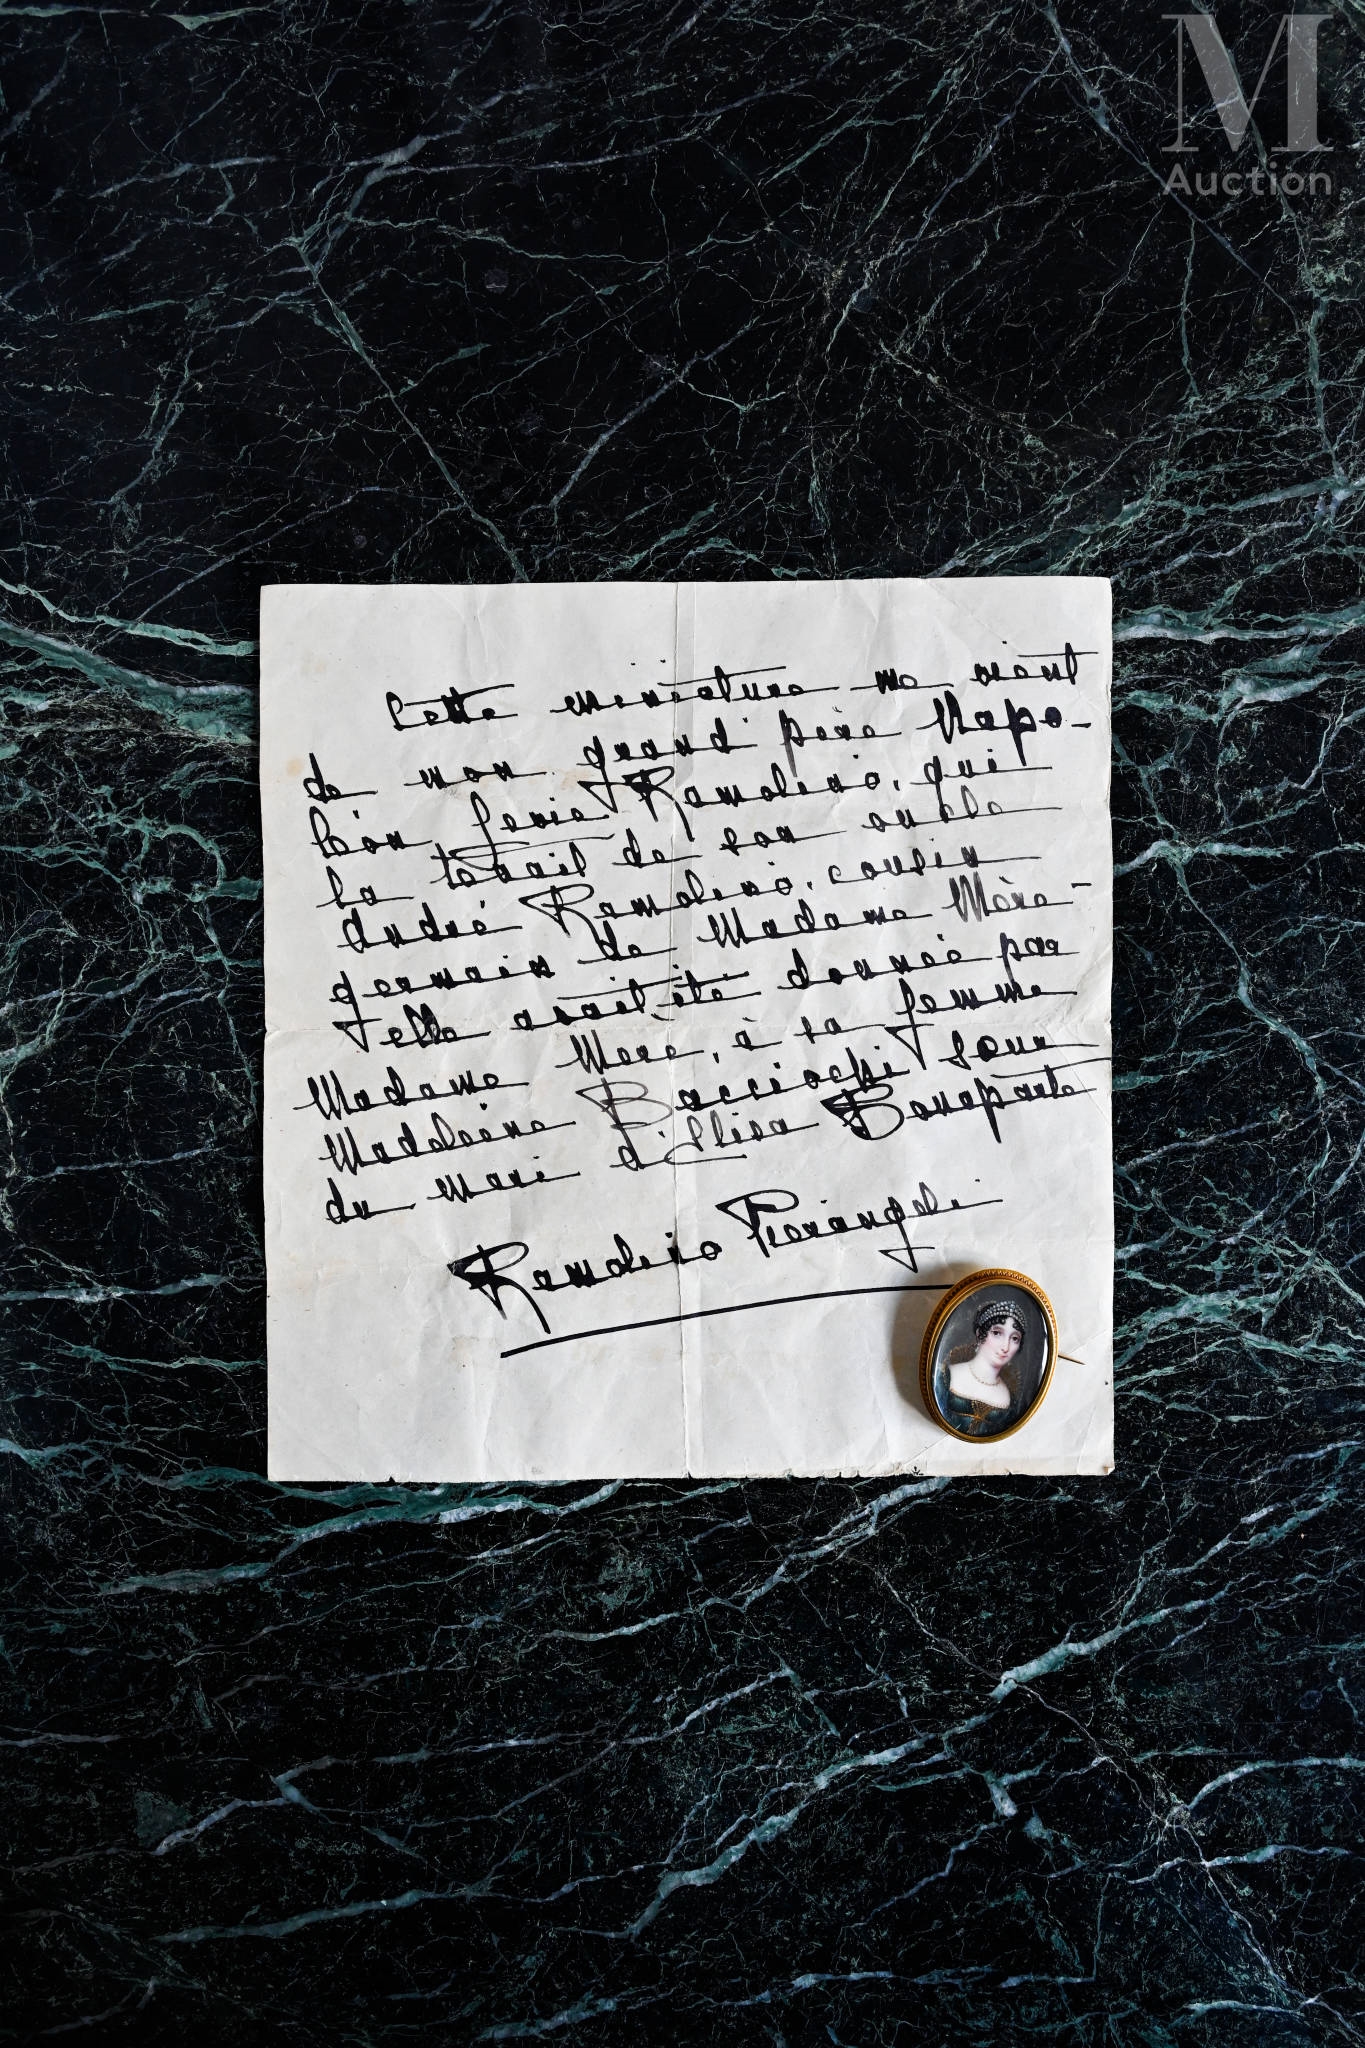 M
Auction
Cette miniature me vient
de mon grand père Napo-
léon Levie Ramolino, qui
la tenait de son oncle
André Ramolino, cousin
germain de Madame Mère-
elle avait été donnée par
Madame Mère, à sa femme
Madeleine Bacciochi sœur
du mari d'Elisa Bonaparte
Ramolino Pierangeli